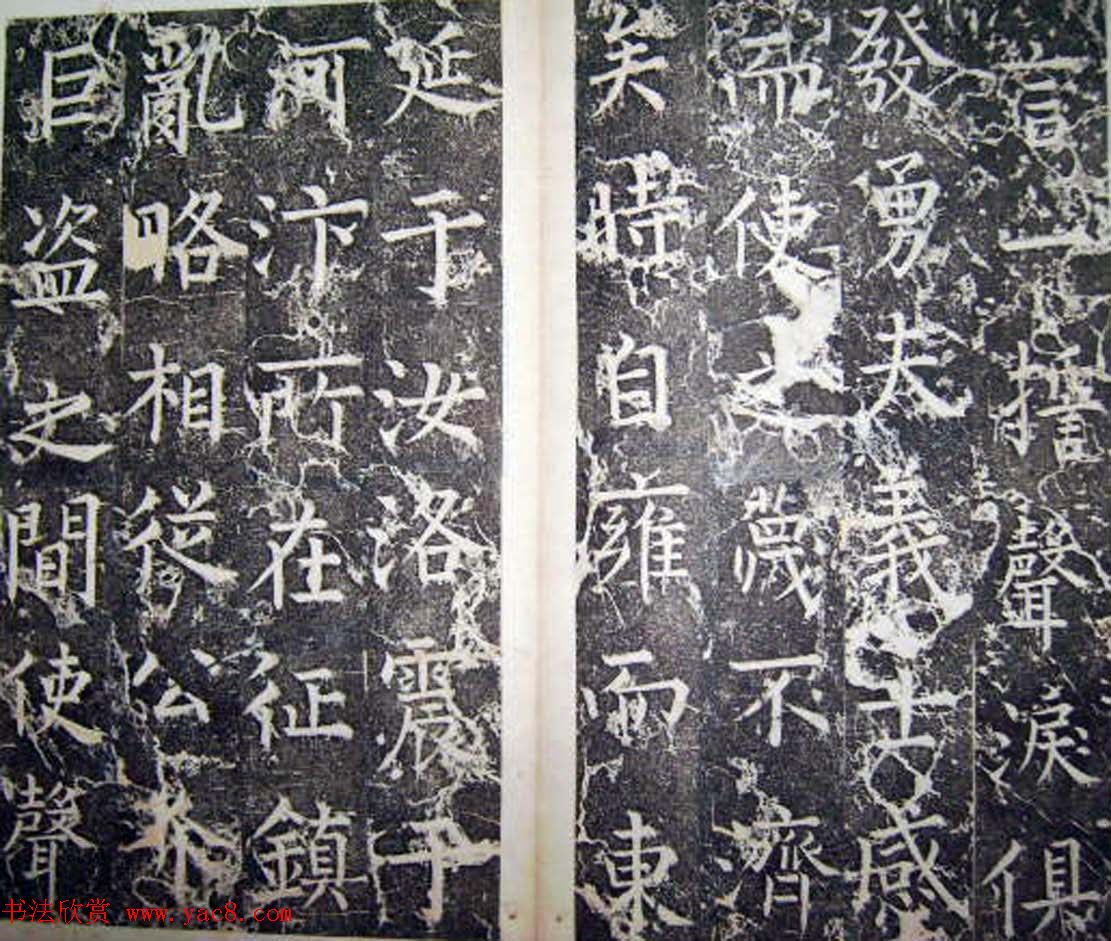 言一聲淚俱
發勇夫義士感
而使之蔑不齊
矣時自雍而東
延于汝洛震于
河汴所在征鎮
亂略相從公介
巨盜之間使聲
书法欣赏 www.yac8.com